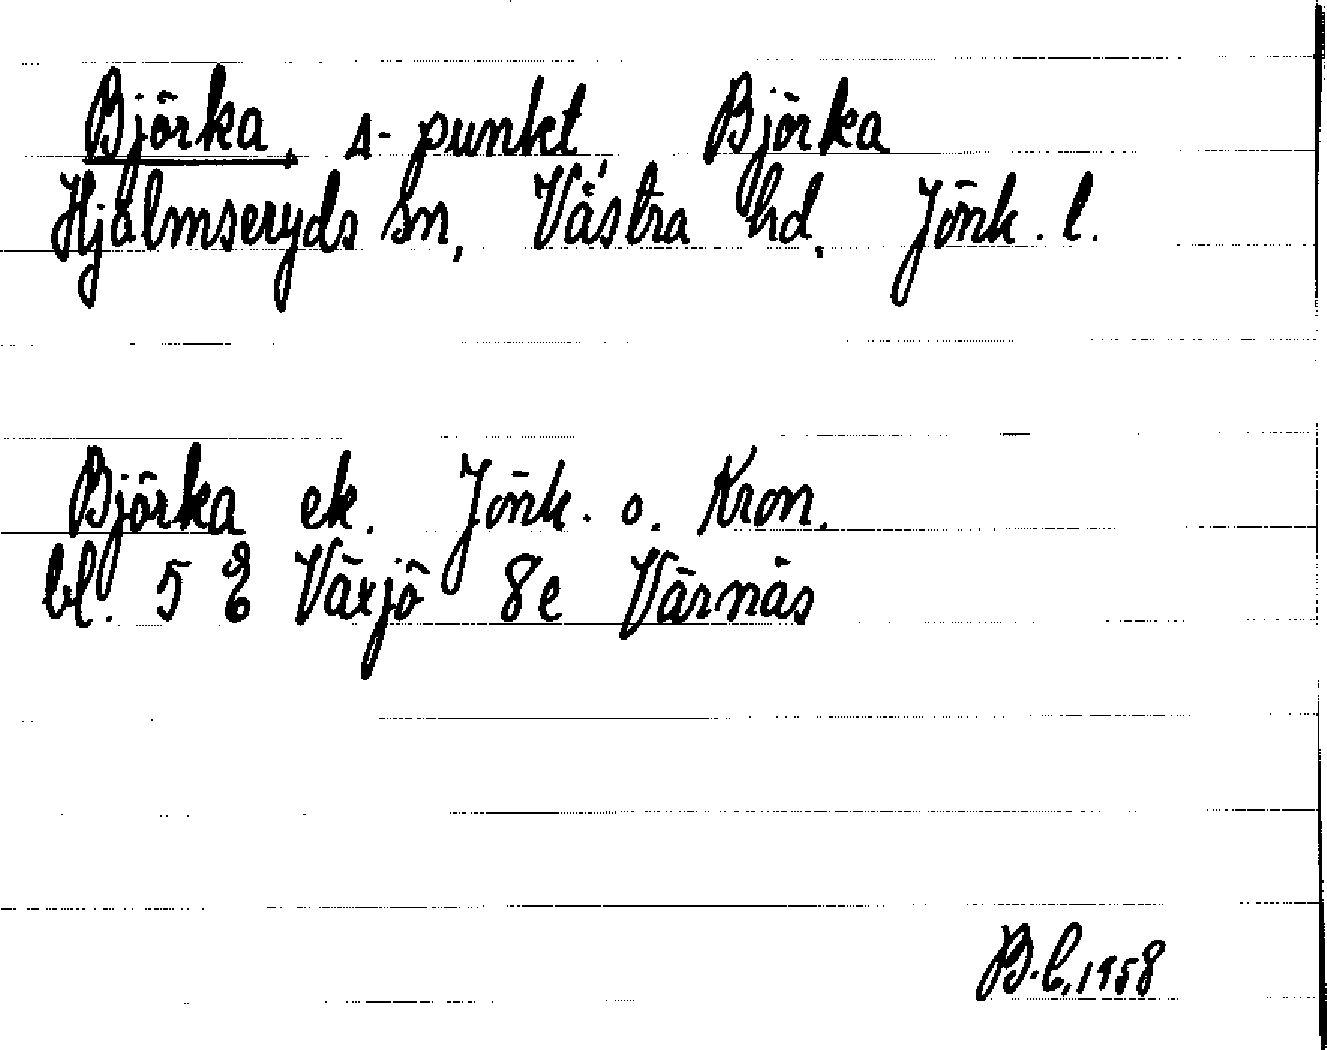 Björka, ∆-punkt Björka
Hjälmseryds sn, Västra hd. Jönk. l.
Björka ek. Jönk. o. Kron.
bl. 5 E Växjö 8e Värnäs
B.C, 1958